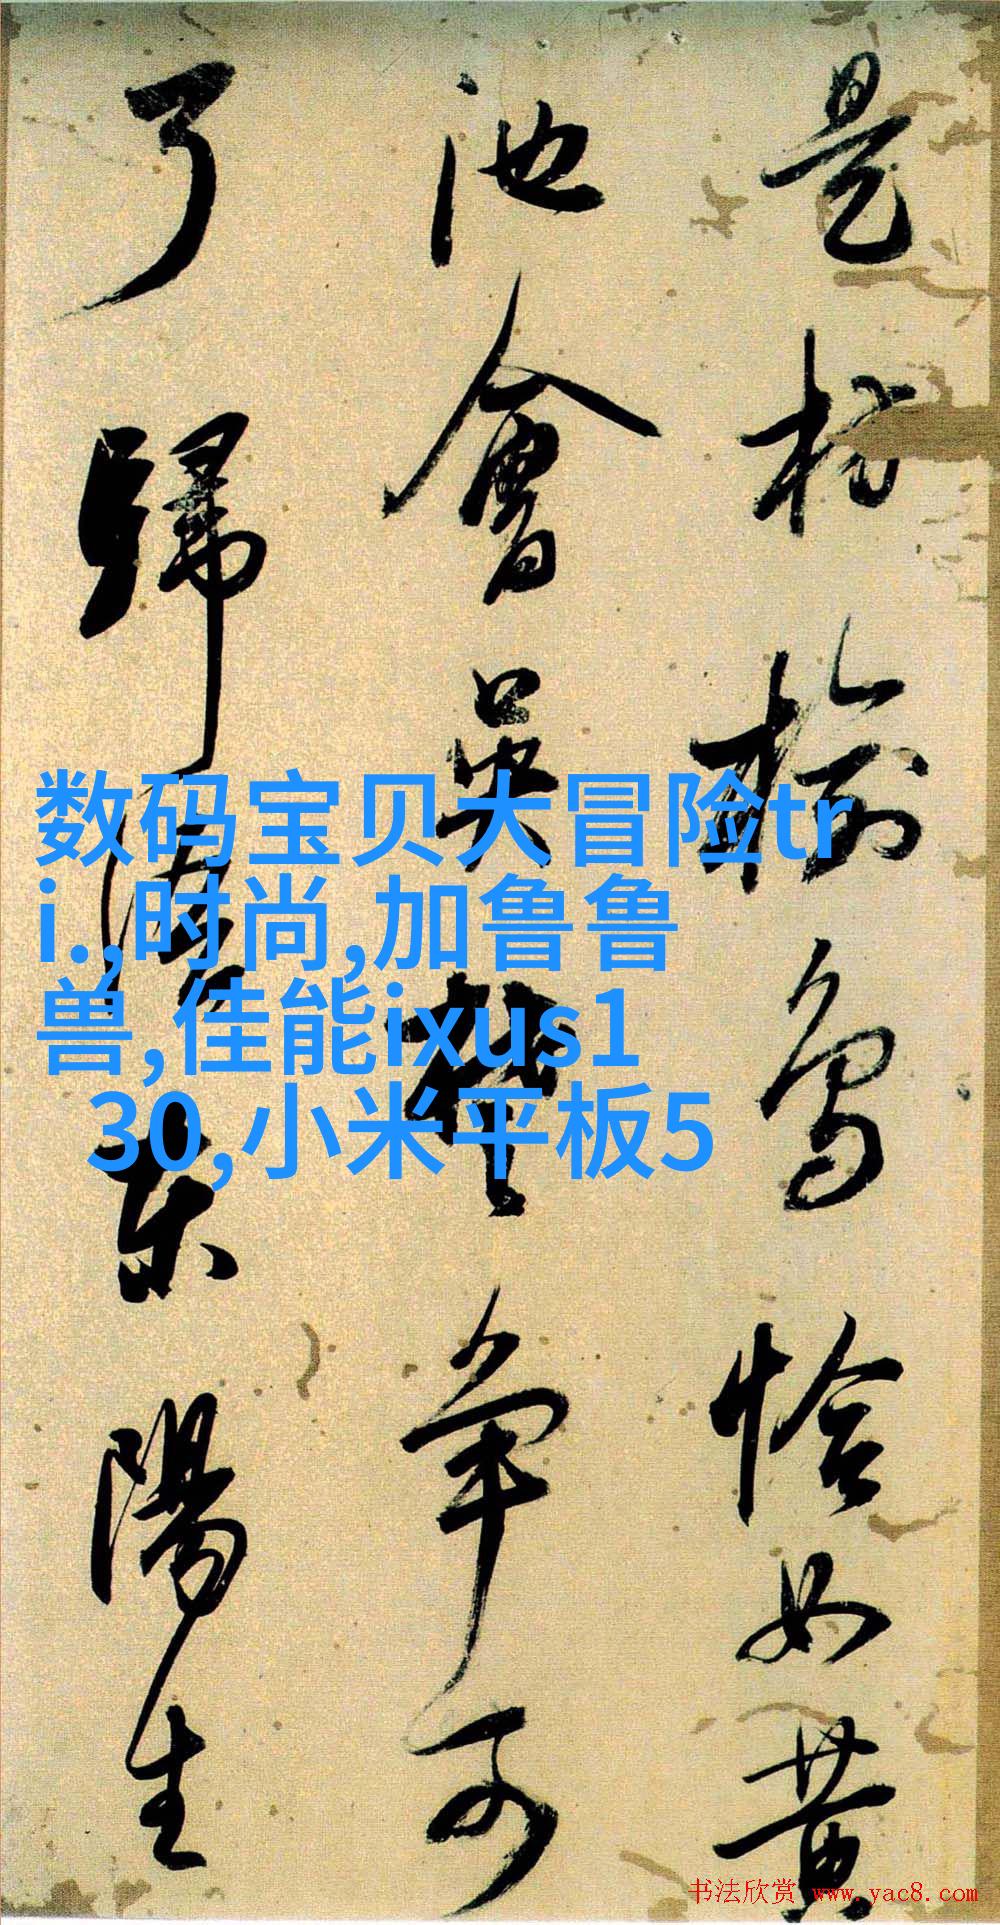 是枋榆鳥恰如黄
池會吳楚爭可
了歸東陽生
数码宝贝大冒险tr
i.,时尚,加鲁鲁
兽,佳能ixus1
30,小米平板5
书法欣赏 www.yac8.com